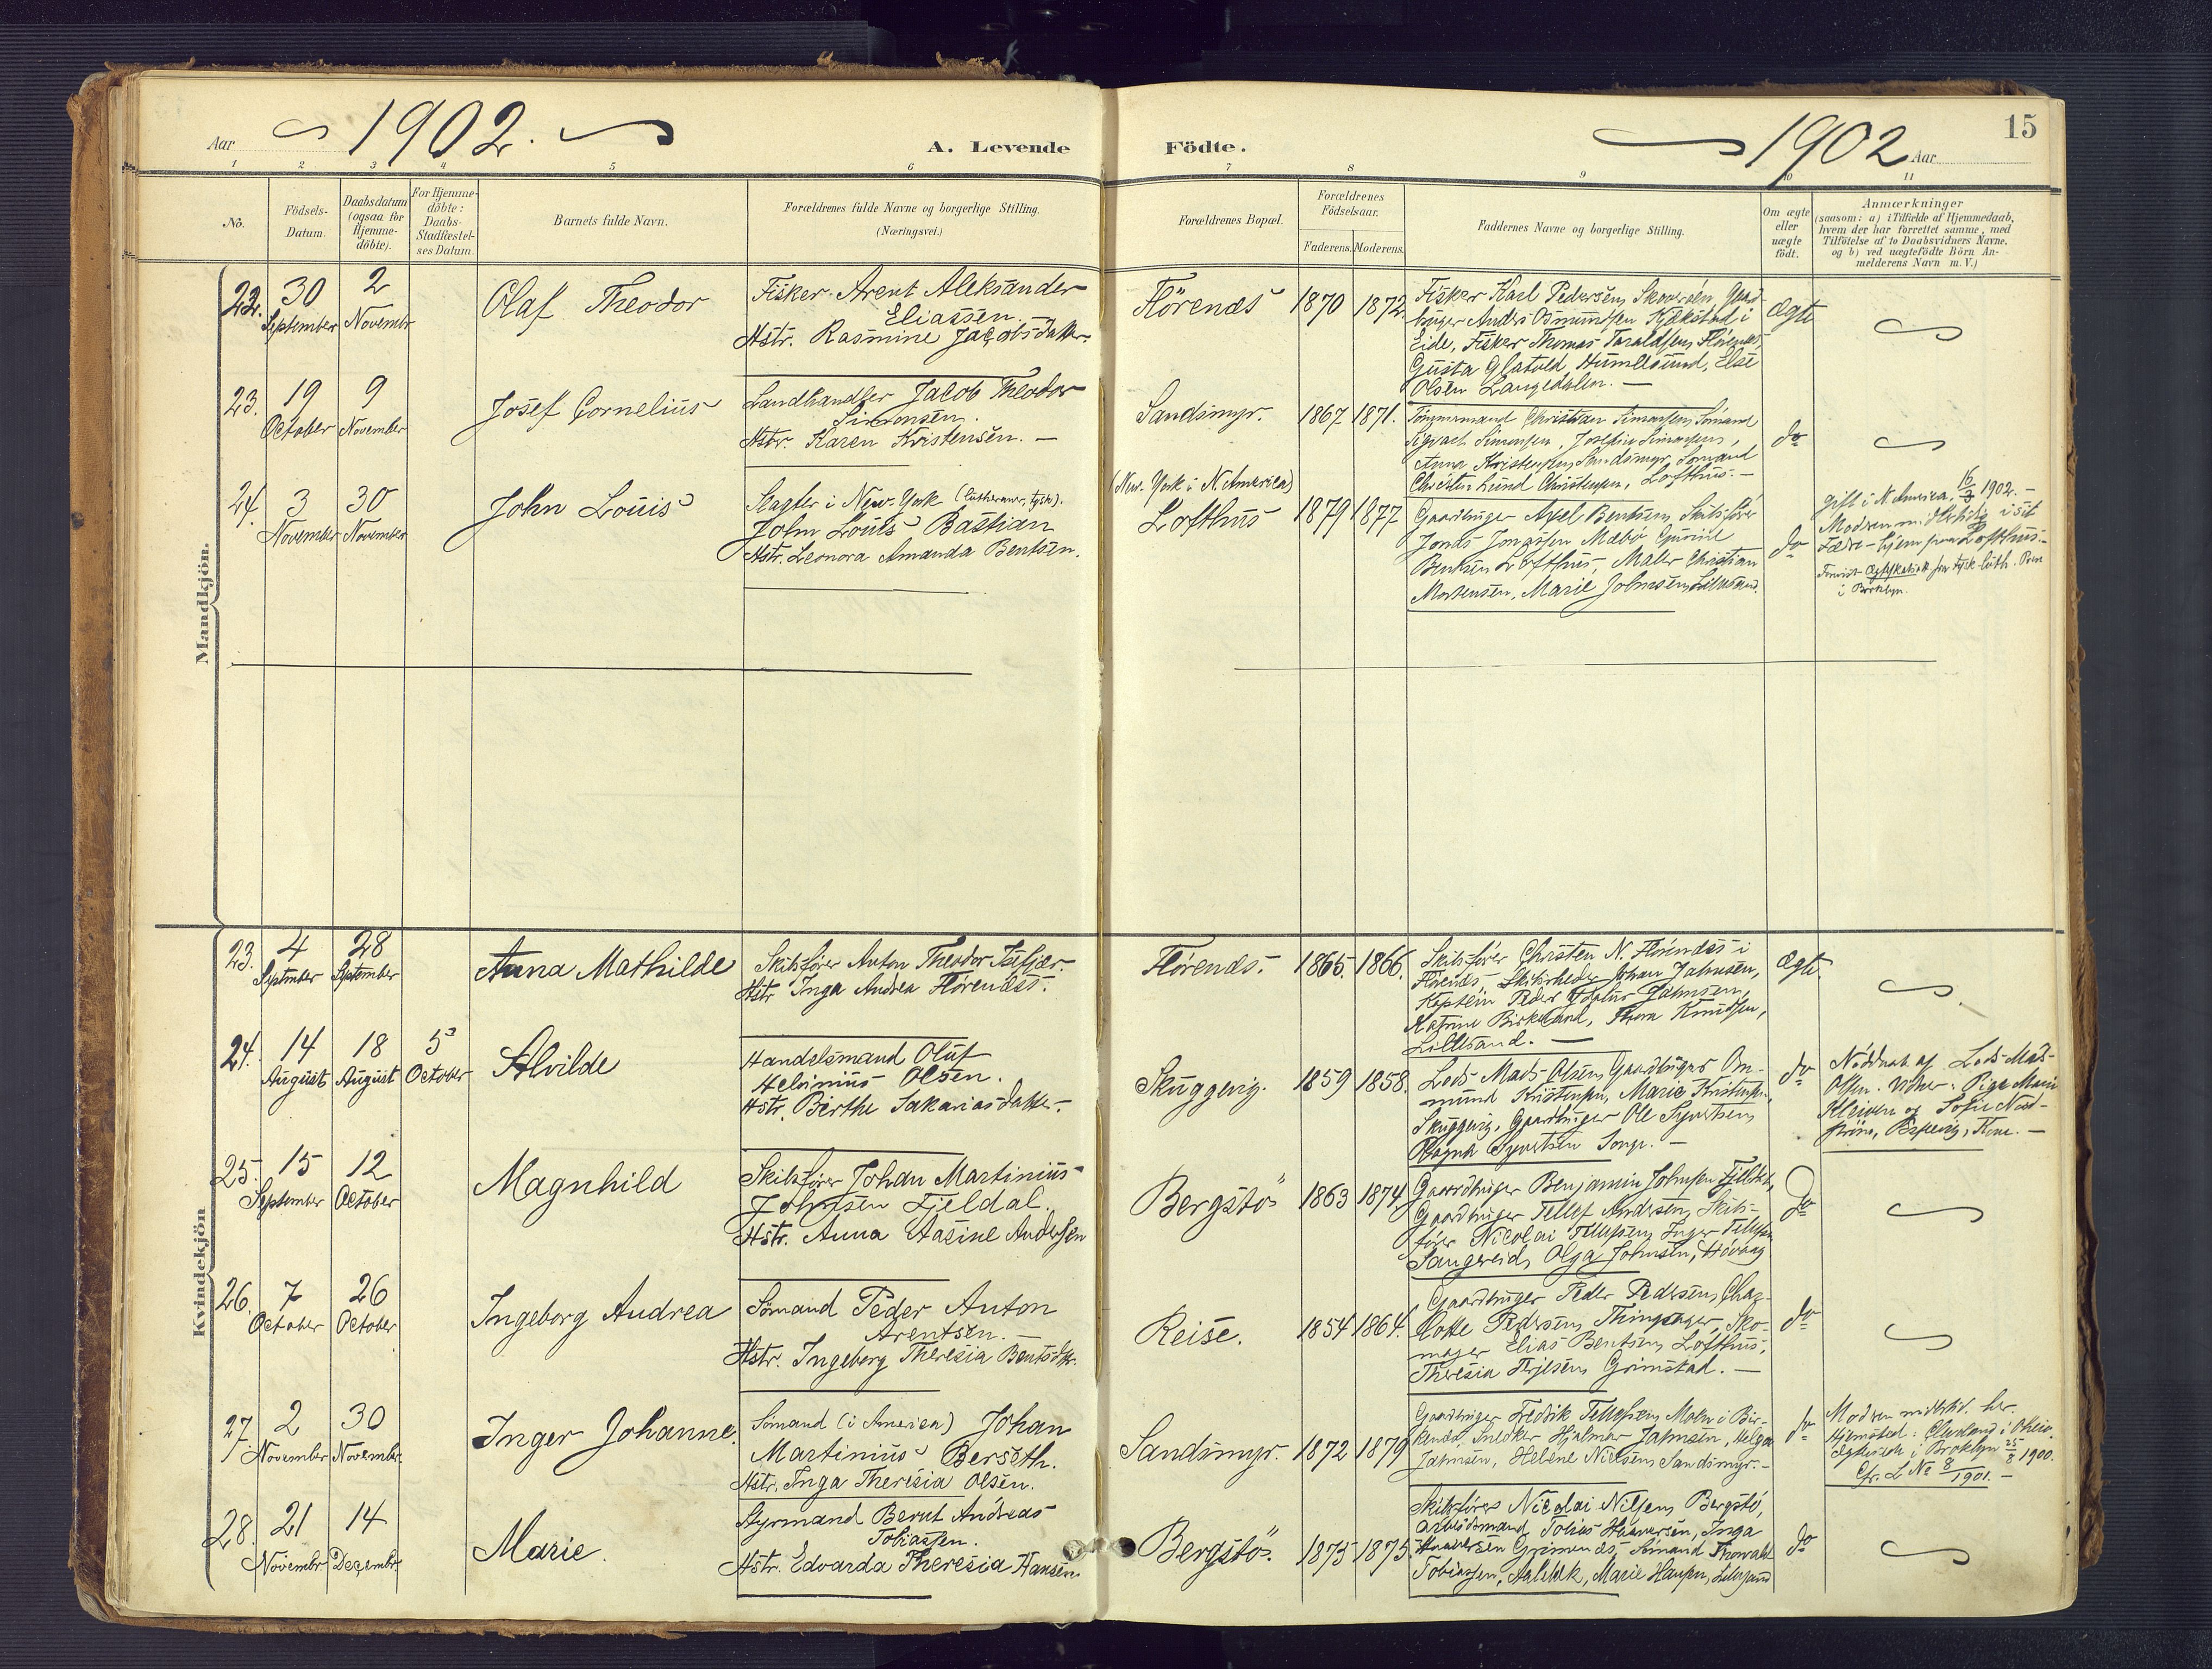 Aar 1902. A. Levende Fødte. 1902 Aar 15
1 2 3 4 5 6 7 8 9 10 11
No.
Födsels-
Datum.
Daabsdatum
(ogsaa for
Hjemme-
döbte).
For Hjemme-
döbte:
Daabs-
Stadfæstel-
ses Datum.
Barnets fulde Navn.
Forældrenes fulde Navne og borgerlige Stilling.
(Næringsvei.)
Forældrenes Bopæl.
Forældrenes
Födselsaar.
Faderens. Moderens.
Faddernes Navne og borgerlige Stilling.
Om ægte
eller
uægte
födt.
Anmærkninger
(saasom: a) i Tilfælde af Hjemmedaab,
hvem der har forrettet samme, med
Tilföielse af to Daabsvidners Navne,
og b) ved uægtefödte Börn An-
melderens Navn m. V.)
Mandkjön.
22. 30 September 2 Novembr
Olaf Theodor
Fisker Arent Aleksander
Eliassen.
Hstr. Rasmine Jacobsdatter.
Flörenæs
1870 1872.
Fisker Karl Pedersen, Skoveröen, Gaard-
bruger Anders Osmundsen Kjækstad i
Eide, Fisker Thomas Taraldsen, Flörenæs,
Gusta Glatvold, Humlesund, Else
Olsen Langedalen. —
Ægte
23. 19 October 9 November
Josef Cornelius
Landhandler Jacob Theodor
Simonsen.
Hstr. Karen Kristensen. —
Sandsmyr.
1867 1871.
Tömmermand Christian Simonsen, Sömand
Sigvart Simonsen, Josefine Simonsen,
Anna Kristensen, Sandsmyr, Sömand
Christen Lund Christensen, Lofthus. —
do
24. 3 November 30 November
John Louis
Slagter i New-York (Lutheraner, tysk).
John Louis Bastian
Hstr. Leonora Amanda Bentsen.
(New-York i N. Amerika)
Lofthus
1879 1877.
Gaardbruger Axel Bentsen, Skibsförer
Jonas Jonassen Mæbö, Gunvil
Bentsen Lofthus, Maler Christian
Mortensen, Marie Johnsen, Lillesand.
do
Gift i N. Amerika, 16/3 1902. —
Modren midlertidig i sit
Fædre-hjem paa Lofthus. —
luth.
i Brooklyn.
Kvindekjön
23. 4 September 28 September
Anna Mathilde
Skibsförer Anton Theodor Isefjær.
Hstr Inga Andrea Flörenæs.
Flörenæs.
1865. 1866.
Skibsförer Christen N. Flörenæs i
Flörenæs, Skibsrheder Johan Jahnsen,
Kaptein Peder Jahnsen,
Katrine Birkeland, Thora Knudsen,
Lillesand. —
ægte
24. 14 August 18 August 5 October
Alvilde
Handelsmand Oluf
Helvinius Olsen.
Hstr. Birthe Sakariasdatter.
Skuggevig.
1859 1858.
Lods Mads Olsen, Gaardbruger Om-
mund Kristensen, Marie Kristensen,
Skuggevig, Gaardbruger Ole Syvertsen,
Syvertsen Songe. —
do
Nöddaab af Lods Mads
Olsen. Vidner: Pige Marie
Kleiven og Sofie Nord-
25. 15 September 12 October
Magnhild
Skibsförer Johan Martinius
Johnsen Fjeldal.
Hstr. Anna Aasine Andersen
Bergstö
1863 1874.
Gaardbruger Benjamin Johnsen Fjeldal,
Gaardbruger Tellef Andersen, Skibs-
förer Nicolai Tellefsen, Inger Tellefsen
Sangereid, Olga Johnsen, Hövaag
do
26. 7 October 26 October
Ingeborg Andrea
Sömand Peder Anton
Arentsen. —
Hstr. Ingeborg Theresia Bentsdtr.
Reise.
1854 1864.
Gaardbruger Peder Pedersen, Char-
lotte Pedersen, Thingsager, Sko-
mager Elias Bentsen, Lofthus,
Theresia Terjesen, Grimstad. —
do
27. 2 November 30 Novembr.
Inger Johanne.
Sömand (i Amerika) Johan
Martinius Berseth.
Hstr. Inga Theresia Olsen.
Sandsmyr.
1872 1879
Gaardbruger Fredrik Tellefsen, Moen i Bir-
kenæs, Snedker Hjalmar Jahnsen, Helga
Jahnsen, Helene Nielsen, Sandsmyr. —
do
Modren midlertid. her.
Hjemsted: Cleveland i Ohio.
i Broklyn 25/8 1900.
Cfr. L No 8/1901. —
28. 21 Novembr. 14 Decembr.
Marie.
Styrmand Bernt Andreas
Tobiassen.
Hstr. Edvarda Theresia Hansen
Bergstö.
1875 1875.
Skibsförer Nicolai Nilsen, Bergstö,
Arbeidsmand Tobias Haaversen, Inga
Haaversen Grimenæs, Sömand Thorvald
Tobiassen, Marie Hansen, Lillesand
do